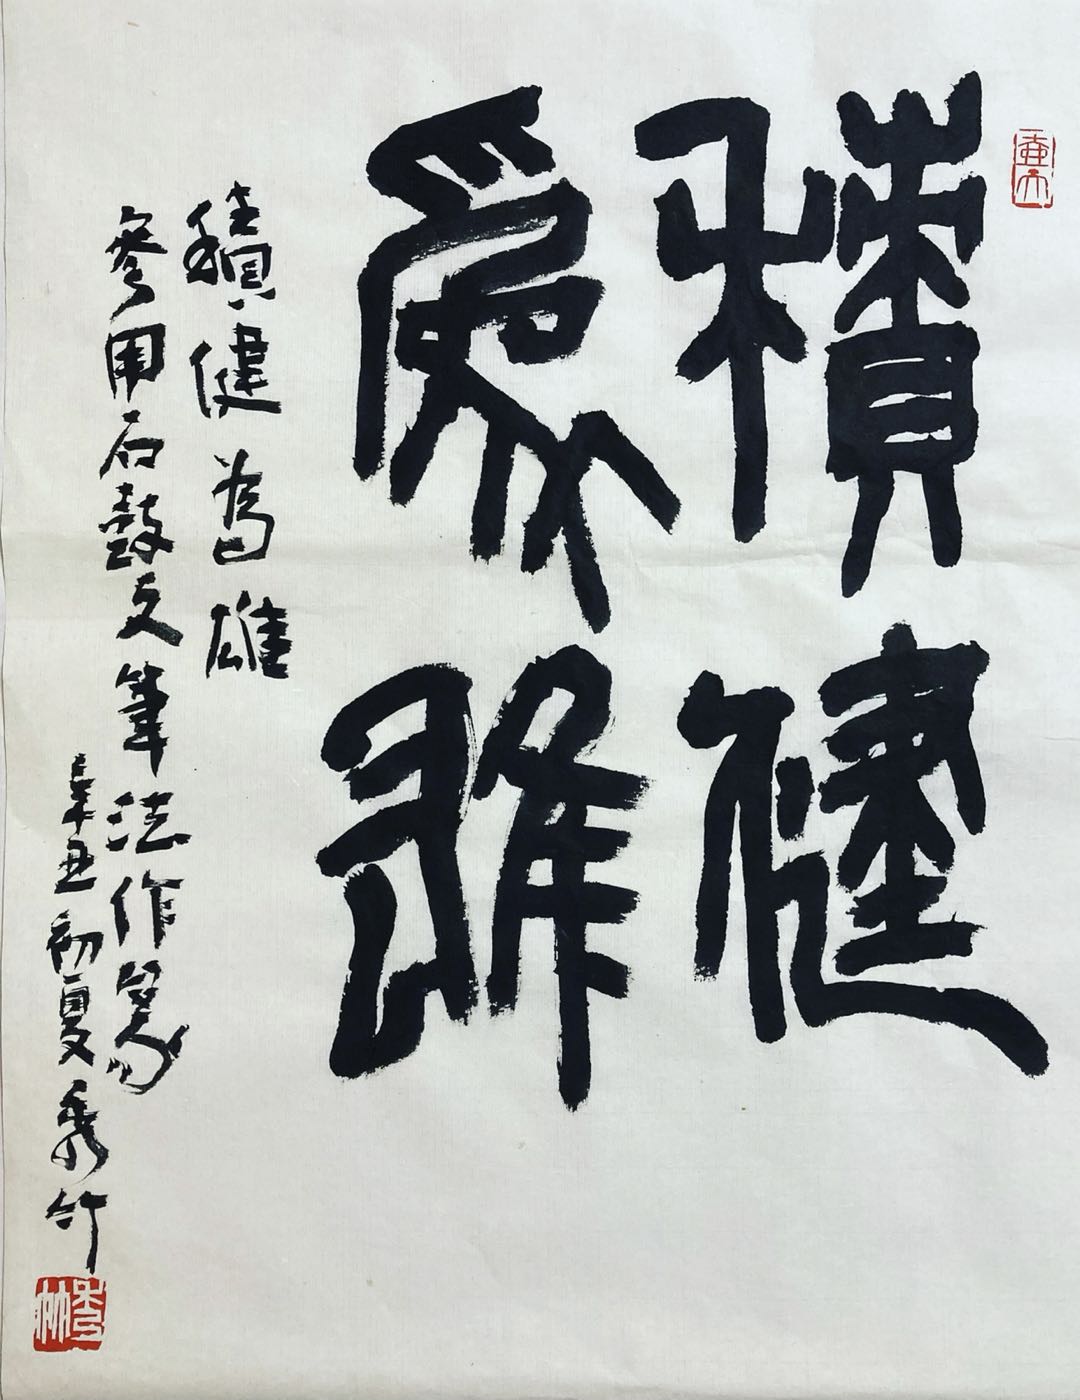 積健
為雄
積健為雄
參用石鼓文筆法作篆
辛丑初夏秀竹
秀竹